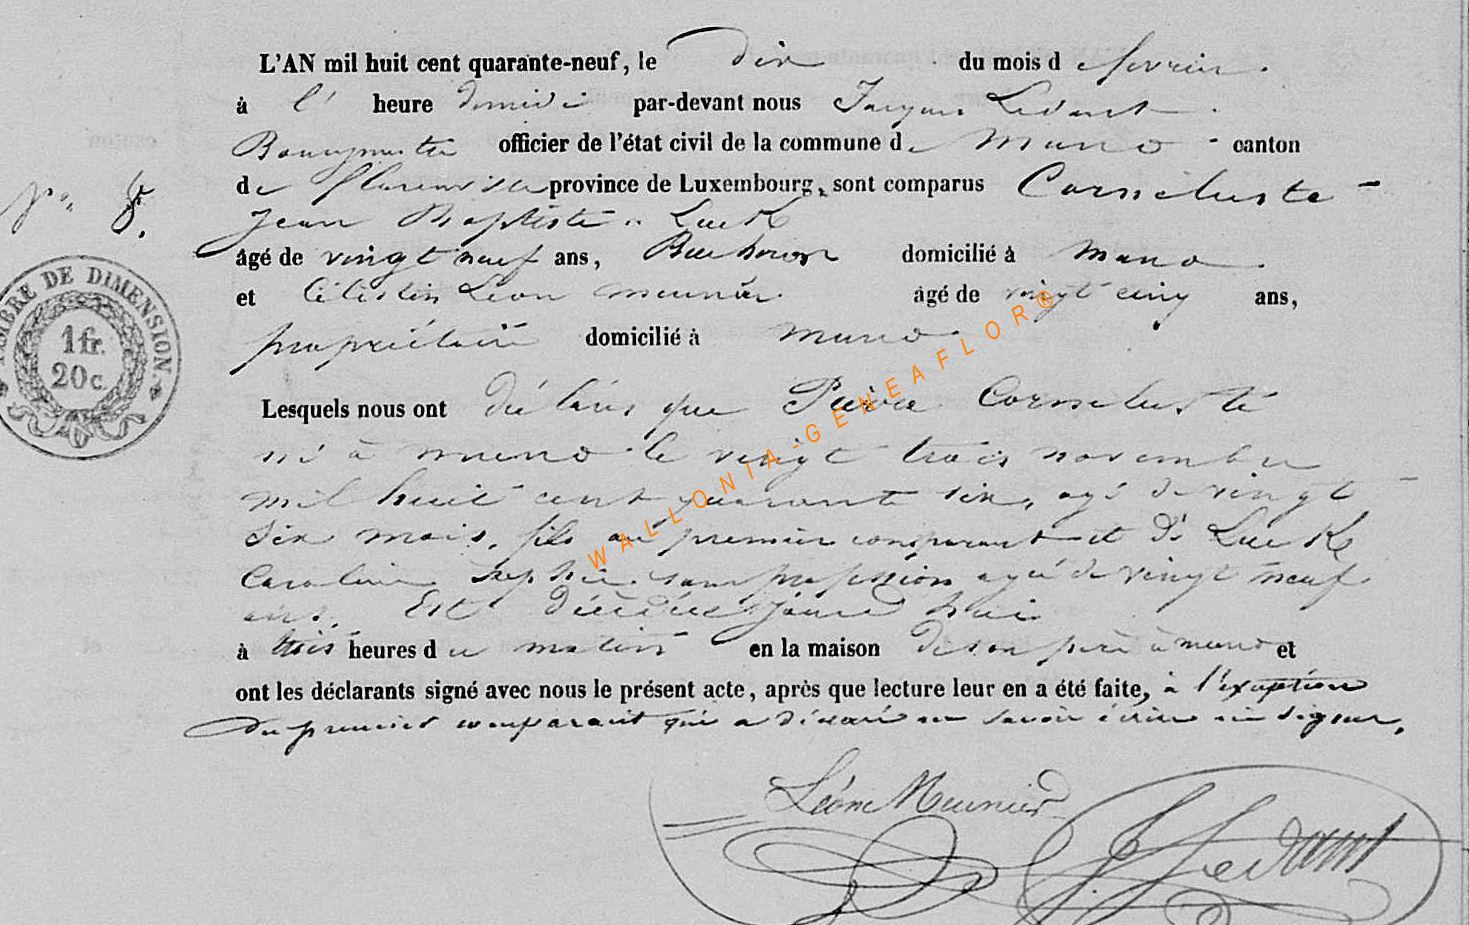 L'AN mil huit cent quarante-neuf, le dix du mois de fevrier.
à l' heure demidi par-devant nous Jacques Ledant
Bourgmestre officier de l'état civil de la commune de Muno - canton
de florenville province de Luxembourg, sont comparus Corneluste -
N° 8.
Jean Baptiste Luck
âgé de vingt neuf ans, Bucheron domicilié à Muno.
et Célestin Léon meunier. âgé de vingt cinq ans,
propriétaire domicilié à muno.
TIMBRE DE DIMENSION.
1 fr.
20 c.
Lesquels nous ont déclaré que Pierre Corneluste
né à muno le vingt trois novembre
mil huit cent quarante six, agé de vingt
six mois, fils au premier comparant et de Luck
Caroline sophie. sans profession agée de vingt neuf
ans. Est décédée jourd hui
à trois heures du matin en la maison de son pere à muno et
ont les déclarants signé avec nous le présent acte, après que lecture leur en a été faite, à l'exception
du premier comparant qui a déclaré ne savoir écrire ni signer.
WALLONIA-GENEAFLOR©
Léon Meunier
J. Ledant